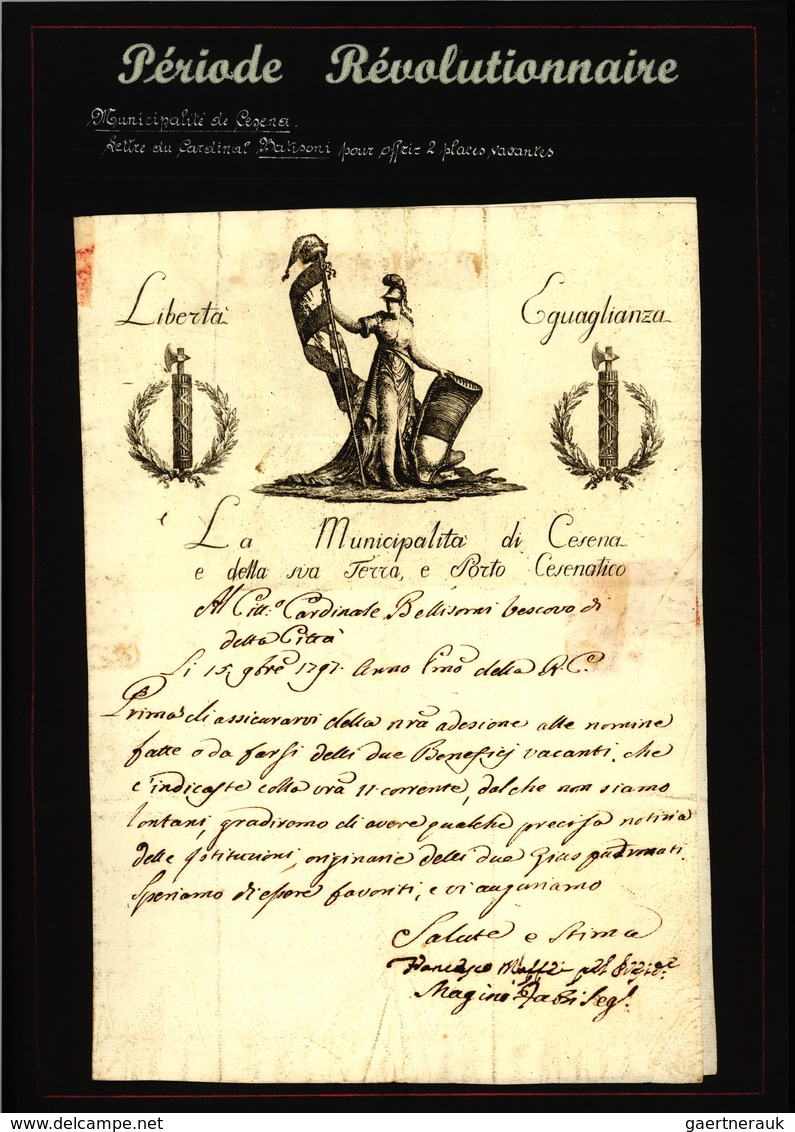 Période Révolutionnaire
Municipalité de Cesena.
Lettre du Cardinal Batisoni pour offrir 2 places vacantes
Libertà
Eguaglianza
La Municipalità di Cesena
e della sua Terra, e Porto Cesenatico
Al Citt.º Cardinale Bellisomi Vescovo di
detta Città
Li 15. 9bre 1797. Anno Pmo della R. C.
Prima di assicurarvi della nra adesione alle nomine
fatte o da farsi delli due Beneficj vacanti, che
c'indicaste colla vra 11 corrente, dal che non siamo
lontani, gradiremo di avere qualche precisa notizia
delle Istituzioni originarie delli due Gius padronati.
Speriamo di essere favoriti, e vi auguriamo
Salute e Stima
Francesco Maffi
Magino Fabri Seg.
gaertnerauk